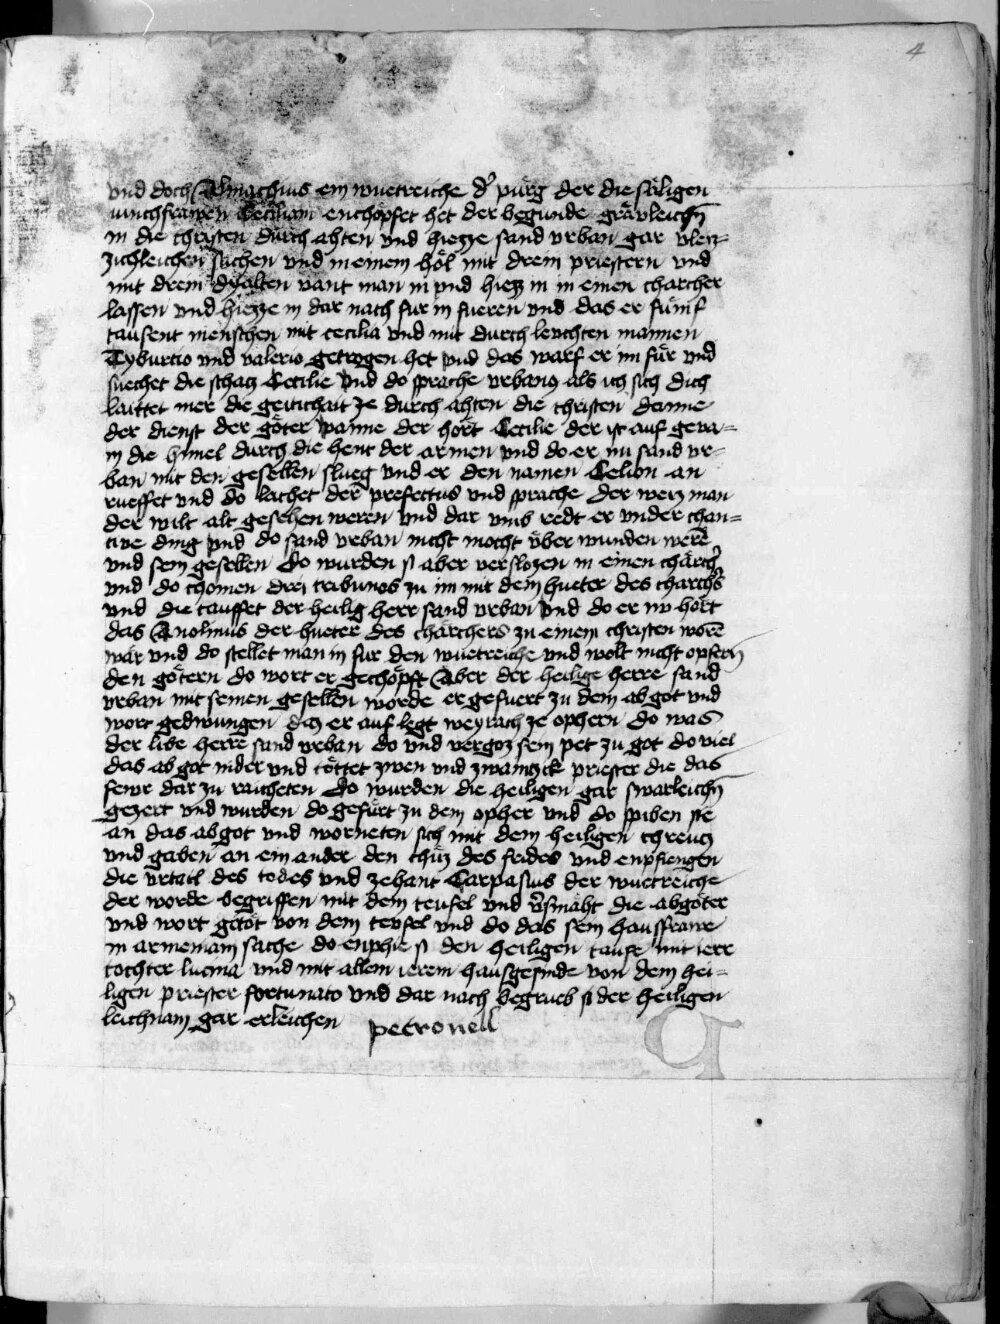 4
vnd doch Almachius ein wuetreiche dˢ purg der die säligen
iunchfrawen Ceciliam enthöpfet het der begunde grävleichn̄
in die christen durch ahten vnd hiezze sand vrban gar vleiz=
zichleichen suchen vnd in einem höl mit drein priestern vnd
mit drein dyalten vant man in vnd hiezz in in einen charcher
lassen vnd hiezze in dar nach fur in fueren vnd das er fünf
tausent menschen mit cecilia vnd mit durch levchten mannen
Tyburcio vnd valerio getrogen het vnd das warf er im für vnd
suechet die schatz Cecilie vnd do sprache vrbanus als ich sich dich
laittet mer die geitichait ze durch ahten die christen danne
der dienst der göter wanne der hört Cecilie der ist auf geva=
in die himel durch die hent der armen vnd do er nu sand vr=
ban mit den gesellen slueg vnd er den namen Celion an
rueffet vnd do lachet der prefectus vnd sprache der weiz man
der wilt alt gesehen weren vnd dar vmb redt er vnder chan=
tive ding vnd do sand vrban nicht mocht über wunden werē
vnd sein gesellen do wurden si aber verslozen in einen chärchˢ
vnd do chomen drei tribunos zu im mit dem hueter des charchˢs
vnd die tauffet der heilig herr sand vrban vnd do er nv hört
das Anolinus der hueter des charchers zu einem christen worē
wär vnd do stellet man in fur den wuetreiche vnd wolt nicht opfern
den götern do wort er gechöpft Aber der heilige herre sand
vrban mit seinen gesellen worde er gefuert zu dem abgot vnd
wort gedwungen daz er auf legt weyrach ze ophern do was
der libe herre sand vrban do vnd vergoz sein pet zu got do viel
das abgot nider vnd töttet zwen vnd zwaintzck priester die das
fewr dar zu raicheten do wurden die heiligen gar swarleichn̄
gezert vnd wurden do gefürt zu dem opher vnd do spiben sie
an das abgot vnd worneten sich mit dem heiligen chreutz
vnd gaben an ein ander den chuz des frides vnd enpfiengen
die vrtail des todes vnd zehant Carpasius der wuetreiche
der worde begriffen mit dem teufel vnd vˢsmäht die abgöter
vnd wort getöt von dem teufel vnd do das sein hausfrawe
in armeniam sache do enphie si den heiligen tauff mit ierr
tochter lucina vnd mit allem ierem hausgesinde von dem hei=
ligen priester fortunato vnd dar nach begrueb si der heiligen
leichnam gar erleichen petronell